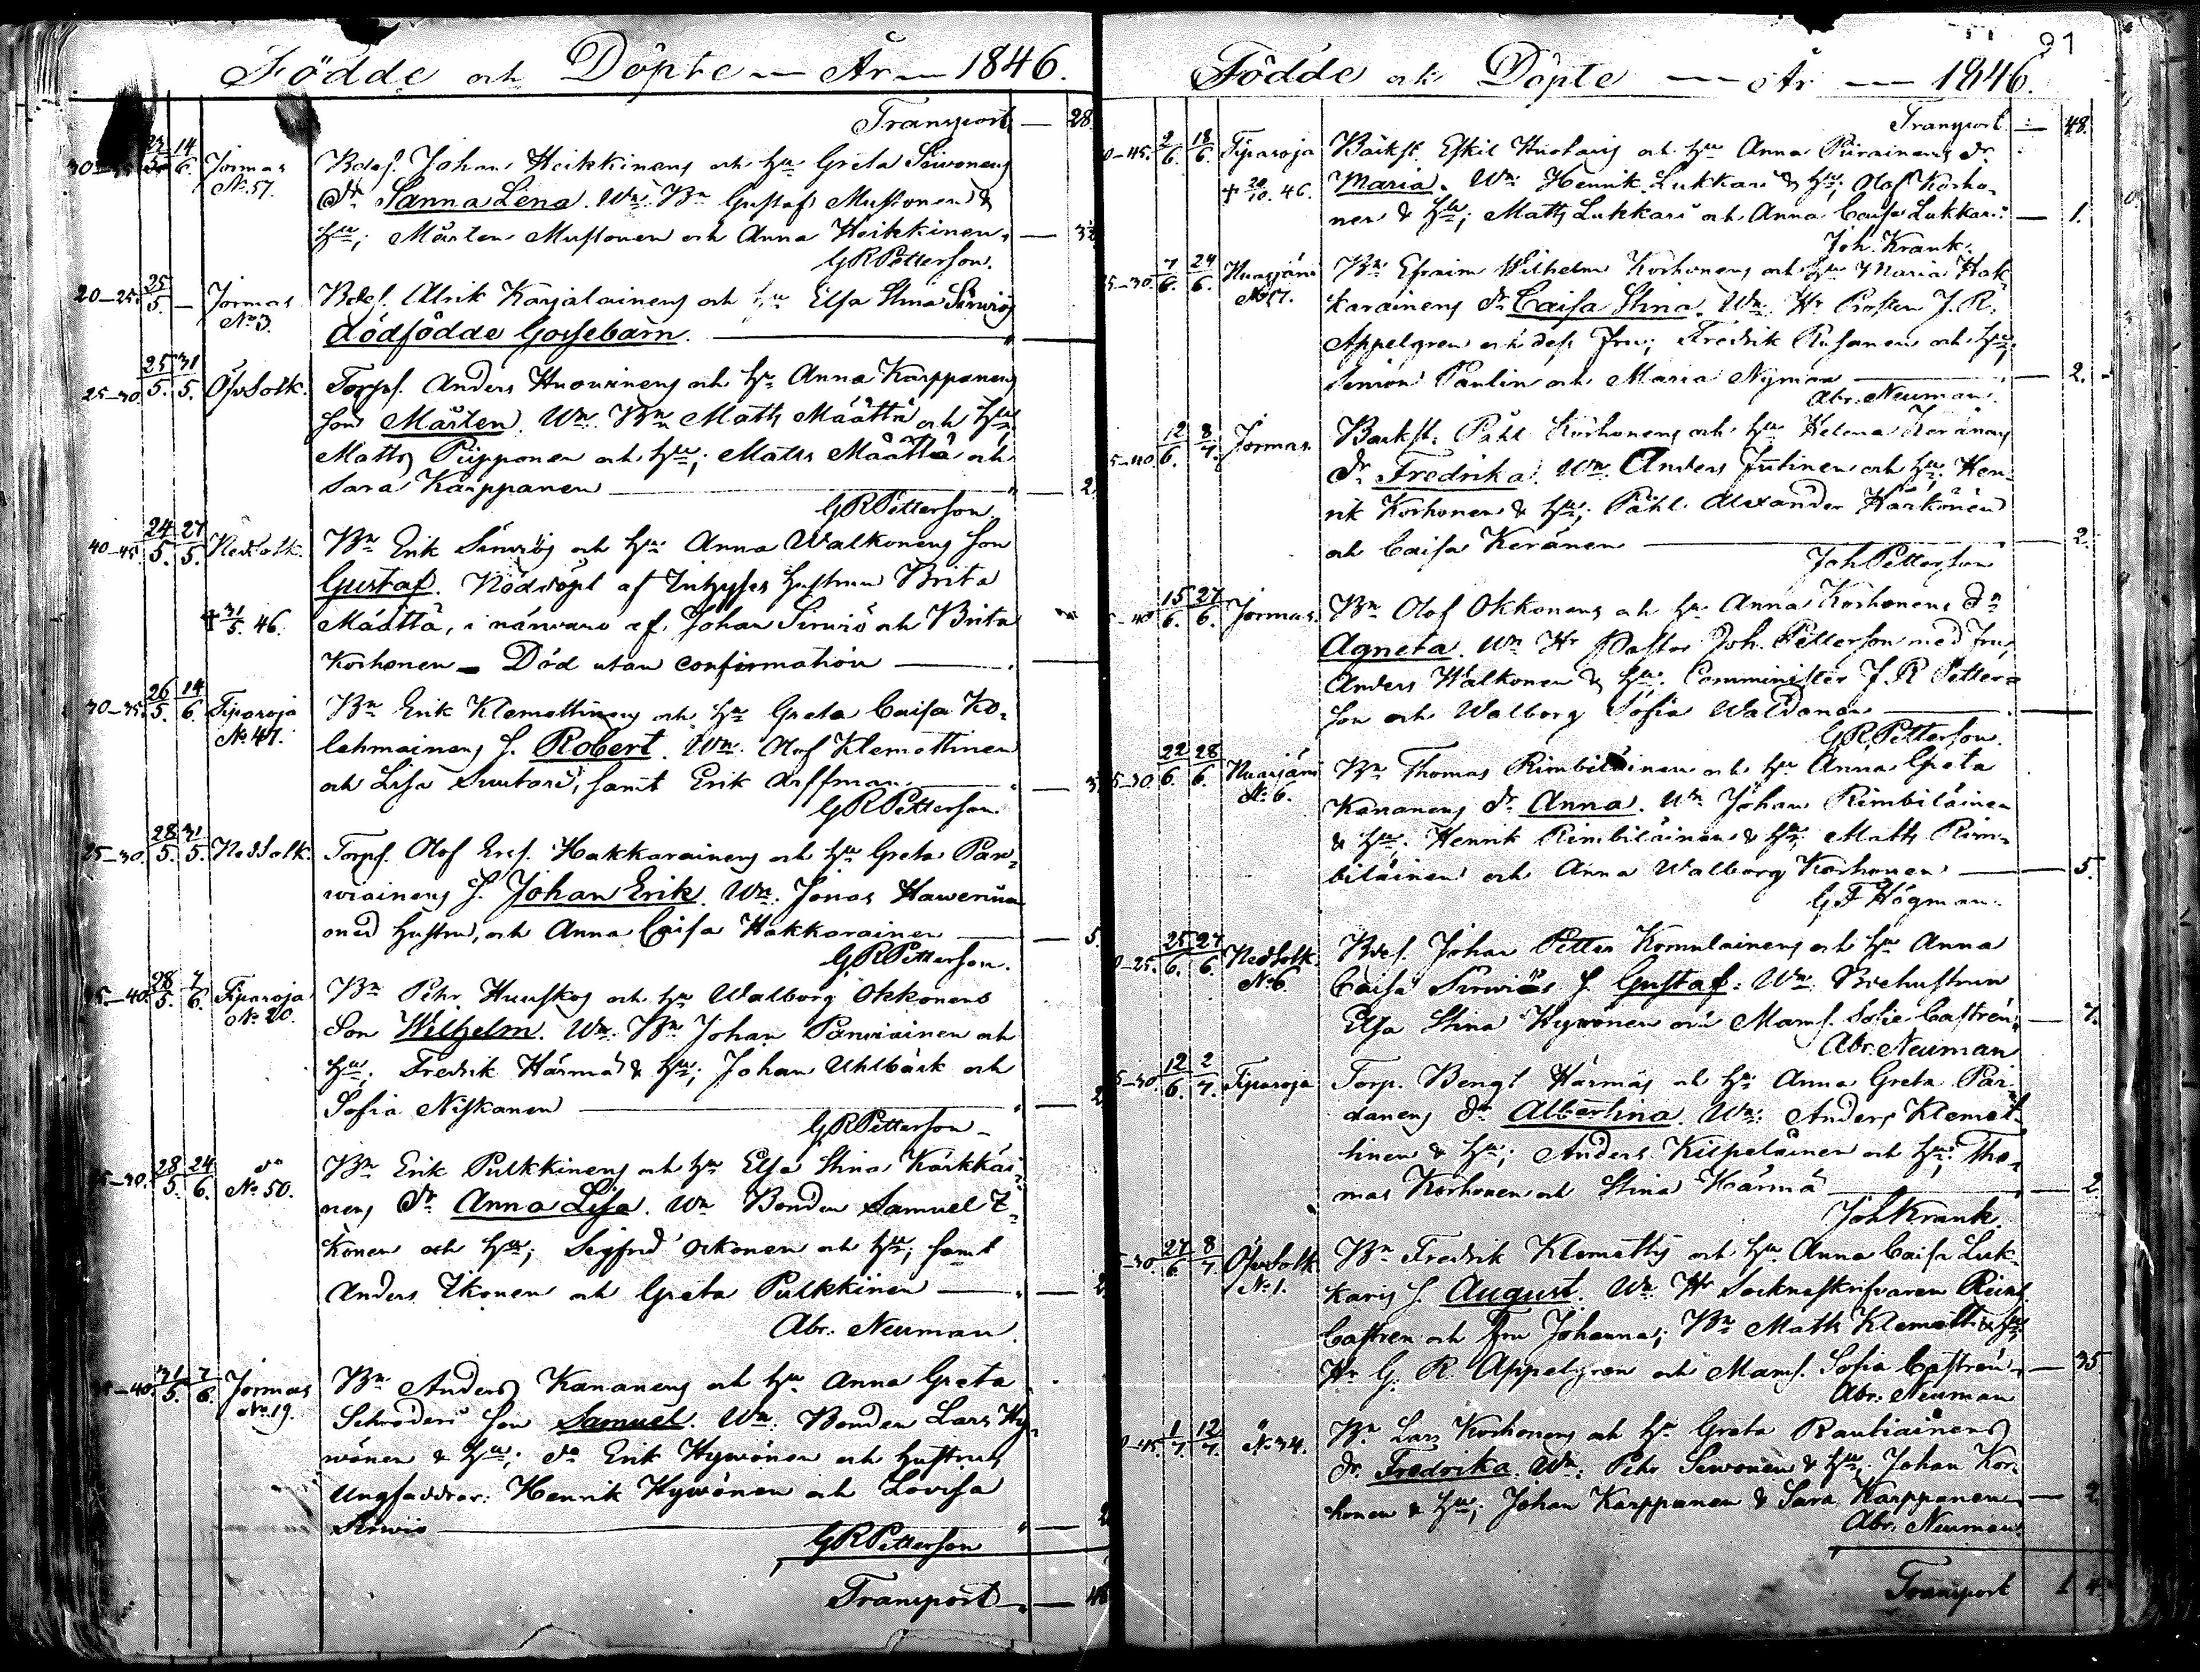 Födde och Döpte — År — 1846.
Transport — 28.
30—35 14/6. Jormas No. 57. Bdes. Johan Heikkinens och hu Greta Siwonens
dr Sanna Lena. Wn. Bn Gustaf Mustonen &
hu; Mårten Mustonen och Anna Heikkinen. —
GRPetterson.
20—25. 25/5. — Jormas No 3. Bdes. Alrik Karjalainens och hu Elsa Stina Sirwiös
dödfödde Gossebarn. —
25—30 25/5. 31/5. ÖfvSotk. Torps. Anders Huowinens och hu Anna Karppanens
son Mårten. Wn. Bn Matts Määttä och hu;
Matts Piipponen och hu; Matts Määttä och
Sara Karppanen — 2.
GRPetterson.
40—45. 24/5. 27/5. NedSotk. Bn Erik Sirwiös och hu Anna Walkonens son
Gustaf. Nöddöpt af Inhyses hustrun Brita
† 31/5. 46. Määttä, i närvaro af Johan Sirwiö och Brita
Korhonen — Död utan confirmation —
30—35. 26/5. 14/6. Tipasoja No. 47. Bn Erik Klemettinens och hu Greta Caisa Ko-
lehmainens s. Robert. Wn. Olof Klemettinen
och Lisa Suutari, samt Erik Arffman —
GRPetterson.
25—30. 28/5. 31/5. NedSotk. Torps. Olof Ers. Hakkarainens och hu Greta Par-
wiainens s. Johan Erik. Wn. Jonas Hawerinen
med hustru, och Anna Caisa Hakkarainen — 5.
GRPetterson.
35—40. 28/5. 7/6. Tipasoja No. 20. Bn Pehr Huuskos och hu Walborg Okkonens
Son Wilhelm. Wn. Bn Johan Parwiainen och
hu; Fredrik Härmä & hu; Johan Uhlbäck och
Sofia Niskanen — 2
GRPetterson —
25—30. 28/5. 24/6. do No. 50. Bn Erik Pulkkinens och hu Elsa Stina Kärkkäi-
nens dr Anna Lisa. Wn Bonden Samuel I-
konen och hu; Sigfrid Ockonen och hu; samt
Anders Ikonen och Greta Pulkkinen — 2
Abr. Neuman.
35—40. 31/5. 7/6. Jormas No. 19. Bn Anders Kananens och hu Anna Greta
Schröders son Samuel. Wn. Bonden Lars Hy-
wönen & hu; do Erik Hywönen och hustru,
Ungfaddrar: Henrik Hywönen och Lovisa
Sirwiö — 2
GRPetterson
Transport — 48
91
Födde och Döpte — År — 1846.
Transport — 48.
40—45. 2/6. 18/6. Tipasoja Backst. Eskil Huotaris och hu Anna Piirainens dr
† 20/10. 46. Maria. Wn. Henrik Lukkari & hu; Olof Korho-
nen & hu; Matts Lukkari och Anna Caisa Lukkari — 1.
Joh. Krank.
25—30. 7/6. 24/6. Naarajärvi No 57. Bn Efraim Wilhelm Korhonens och hu Maria Hak-
karainens dr Caisa Stina. Wn. Hr Prosten J. R.
Appelgren och dess Fru; Fredrik Rusanen och hu;
Simon Paulin och Maria Nyman — 2.
Abr. Neuman.
35—40. 12/6. 8/7. Jormas Backst. Påhl Korhonens och hu Helena Keränens
dr Fredrika. Wn. Anders Juhinen och hu; Hen-
rik Korhonen & hu; Påhl Alexander Härkönen
och Caisa Keränen — 2.
Joh Petterson
35—40 15/6. 27/6. Jormas Bn Olof Okkonens och hu Anna Korhonens dr
Agneta. Wn Hr Pastor Joh. Petterson med Fru,
Anders Walkonen & hu; Comminister J. R Petter-
son och Walborg Sofia Waldanen —
GRPetterson.
25—30. 22/6. 28/6. Naarajärvi No. 6. Bn Thomas Rimbiläinen och hu Anna Greta
Kananens dr Anna. Wn Johan Rimbiläinen
& hu; Henrik Rimbiläinen & hu; Matts Rim-
biläinen och Anna Walborg Korhonen — 5.
G F Högman.
20—25. 25/6. 27/6. NedSotk. No 6. Bdes. Johan Petter Komulainens och hu Anna
Caisa Sirwiös s. Gustaf. Wn. Bdehustrun
Elsa Stina Hywönen och Mams. Sofie Castrén — 7.
Abr. Neuman
25—30. 12/6. 2/7. Tipasoja Torp. Bengt Härmäs och hu Anna Greta Par-
danens dr Albertina. Wn: Anders Klemet-
tinen & hu; Anders Kilpeläinen och hu; Tho-
mas Korhonen och Stina Härmä — 2.
Joh Krank.
25—30. 27/6. 8/7. ÖfvSotk No. 1. Bn Fredrik Klemettis och hu Anna Caisa Luk-
karis s. August. Wn. Hr Socknskrifvaren Reinh.
Castren och Fru Johanna; Bn Matts Klemetti & hu;
Hr G. R. Appelgren och Mams. Sofia Castrén — 35
Abr. Neuman
40—45. 1/7. 12/7. do No 34. Bn Lars Korhonens och hu Greta Rautiainens
dr. Fredrika. Wn: Pehr Siwonen & hu; Johan Kor-
honen & hu; Johan Karppanen & Sara Karppanen — 2
Abr. Neuman.
Transport